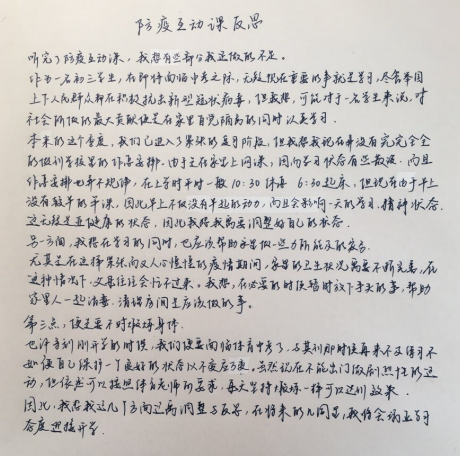 防疫互动课反思
听完了防疫互动课，我想有些部分我还做的不足。
作为一名初三学生，在即将面临中考之际，无疑现在重要的事就是学习，尽管举国
上下人民群众都在积极抗击新型冠状病毒，但我想，可能对于一名学生来说，对
社会所做的最大贡献便是在家里自觉隔离的同时认真学习。
本来的这个季度，我们已进入了紧张的复习阶段，但我想我现在并没有完完全全
的做到学校里的作息安排。由于是在家里上网课，因而学习状态有些散漫。而且
作息安排也并不规律，在上学时平时一般10:30休息 6:30起床，但现在由于早上
没有较早的早课，因此早上不似没有早起的动力，而且会影响一天的学习、精神状态。
这无疑是亚健康的状态，因此我想我需要调整好自己的状态。
另一方面，我想在学习的同时，也应该帮助家里做一些力所能及的家务。
尤其是在这样紧张而又人心惶惶的疫情期间，家里的卫生状况需要不断完善，在
这种情况下，父母往往会忙不过来，我想，在必要的时候暂时放下手头的事，帮助
家里人一起消毒、清理房间是应该做的事。
第三点，便是要不时锻炼身体。
也许等到刚开学的时候，我们便要面临体育中考了，与其到那时候再来不及练习不
如使自己保护一个良好的状态以不变应万变。虽然现在不能出门做剧烈性的运
动，但依然可以按照体育老师的要求，每天坚持锻炼一样可以达到效果。
因此，我想我这几个方面还需调整与反思，在将来的几周里，我将会端正学习
态度迎接开学。